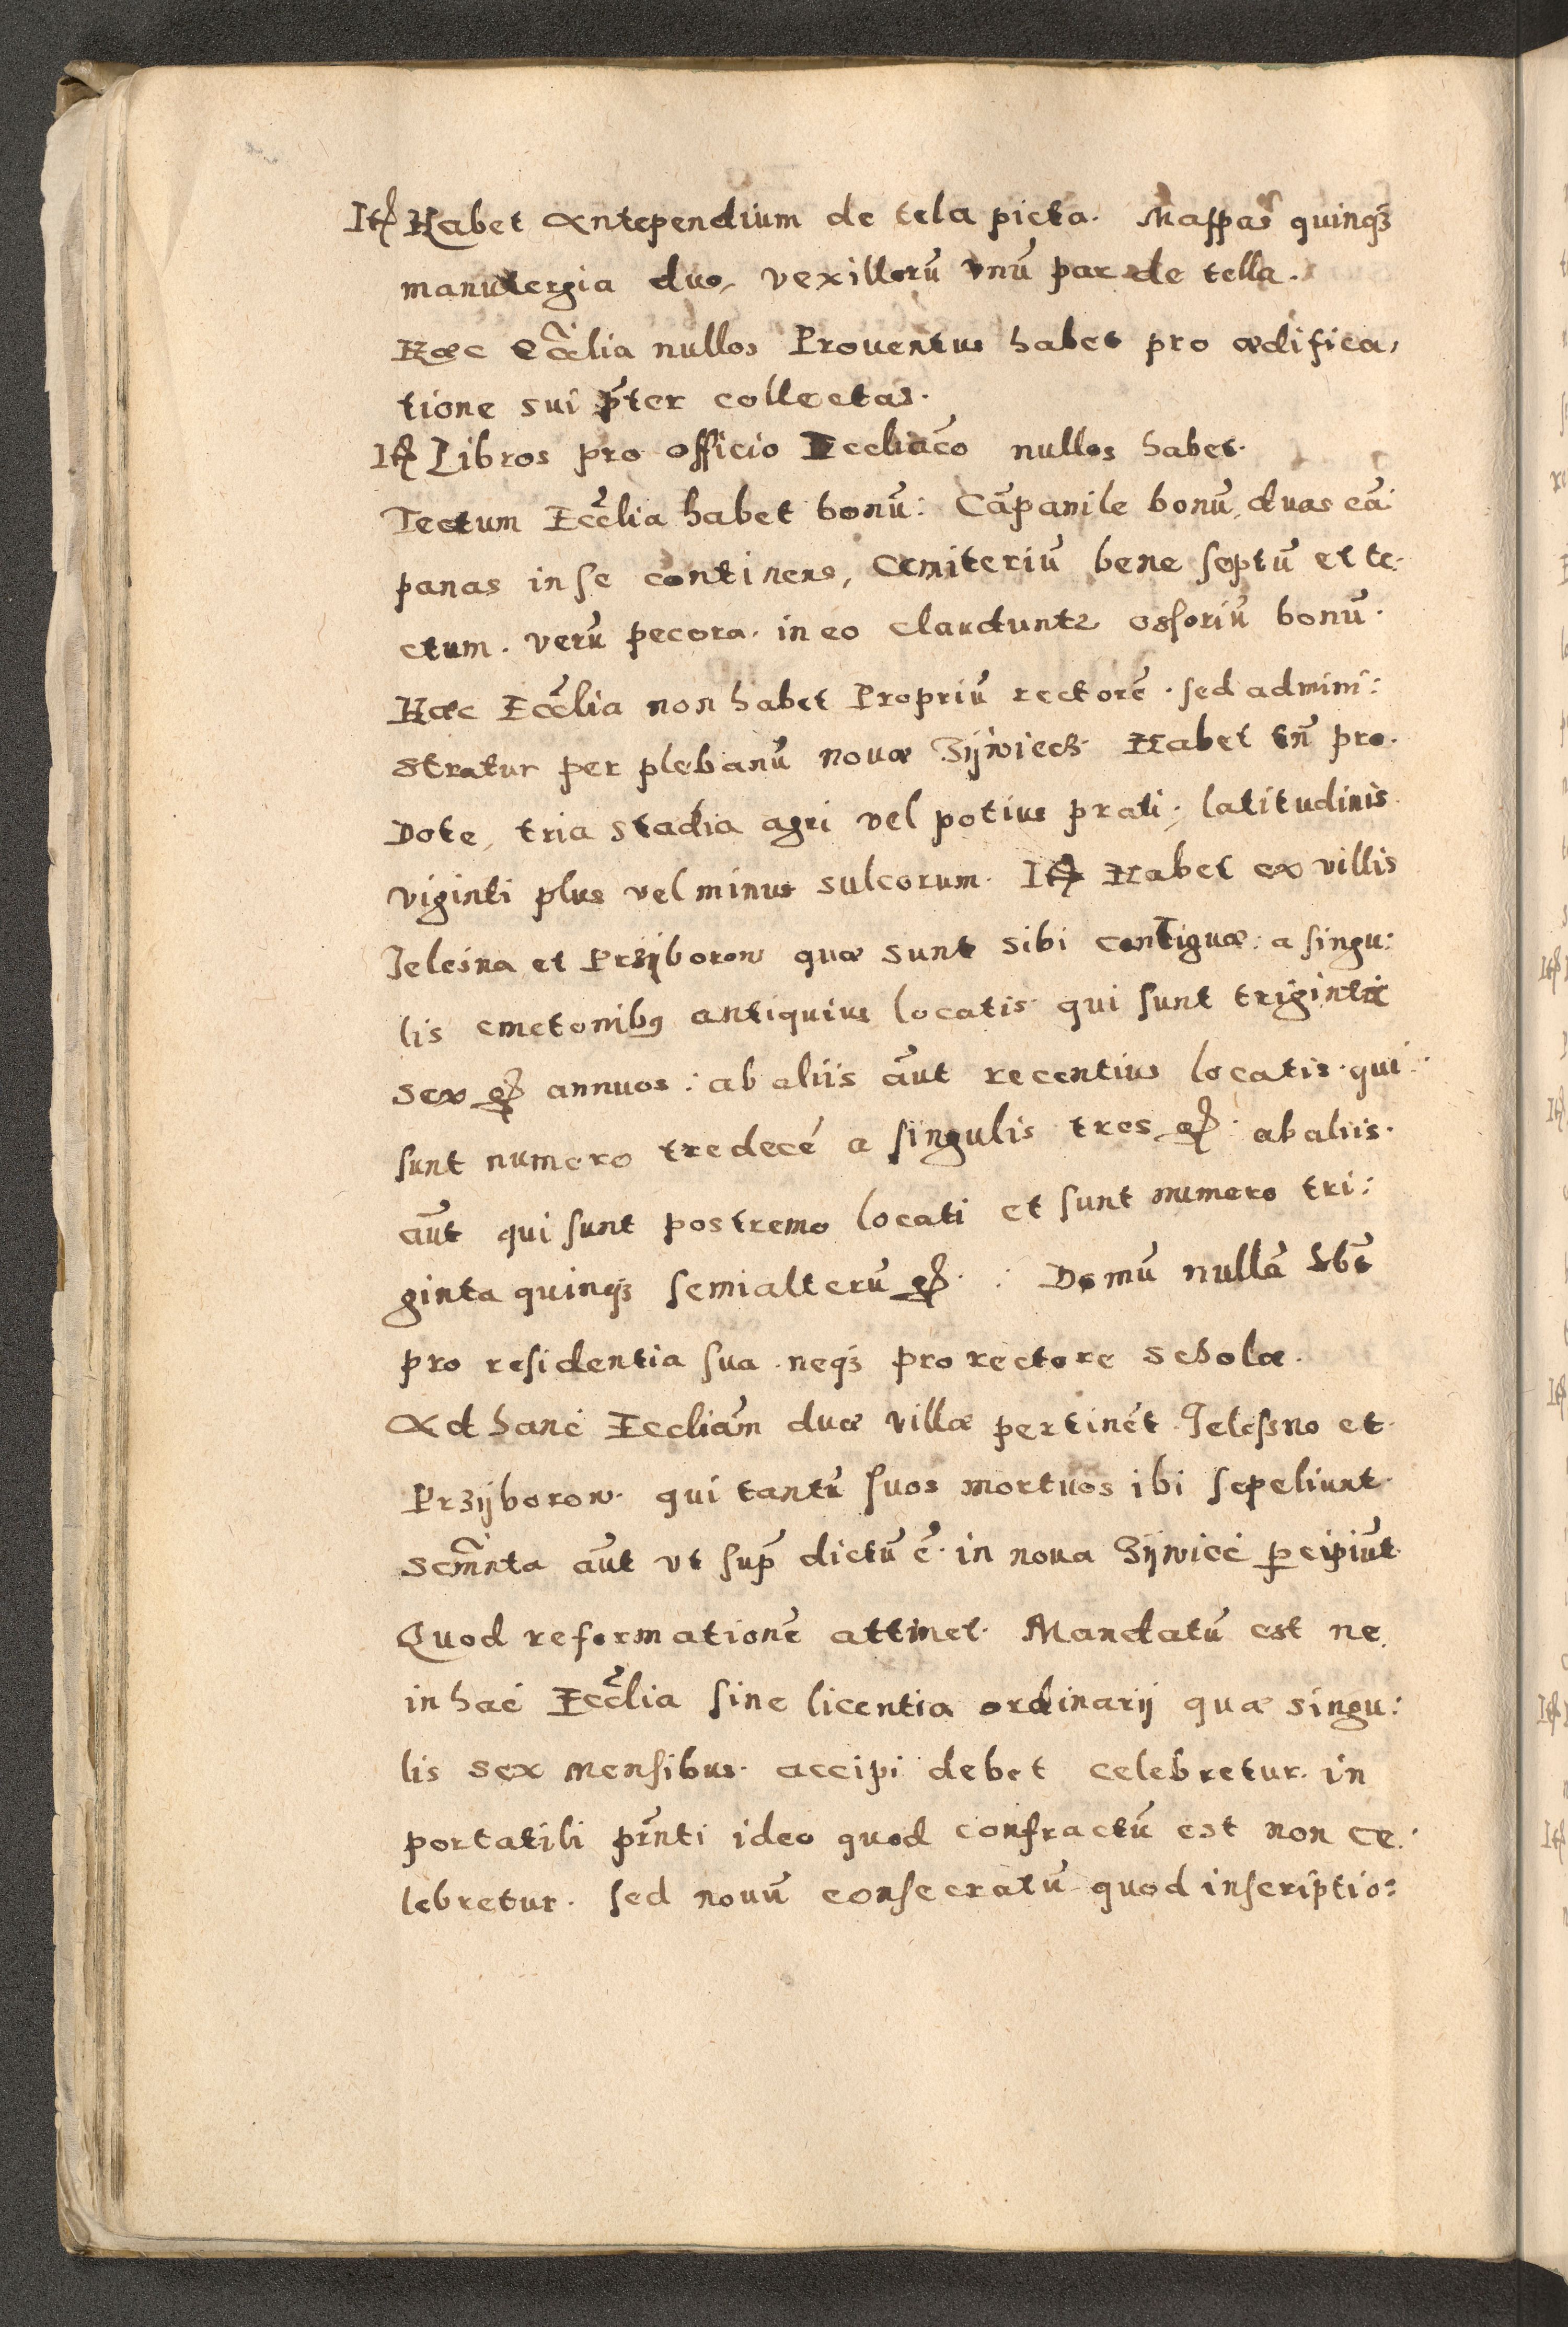 Itē Habet Antependium de tela picta. Mappas quinqȝ
manutergia duo, vexillorū vnū par de tella.
Hæc Eccl̃ia nullos Prouentus habet pro ædifica,
tione sui p̄ter collectas.
Itē Libros pro officio Eccliac̄o nullos habet.
Tectum Eccl̃ia habet bonū: Cāpanile bonū, duas cā
panas in se continens, Cemiterium bene septū et te.
ctum. verū pecora. in eo clauduntr ossoriū bonū.
Hæc Eccl̃ia non habet Propriū rectorē. sed admini:
stratur per plebanū nouæ Zÿwiecz. Habet tn̄ pro.
Dote, tria stadia agri vel potius prati, latitudinis
viginti plus vel minus sulcorum. Itē Habet ex villis
Jelesna et Przÿborow quæ sunt sibi contiguæ: a singu:
lis cmetonibꝰ antiquius locatis qui sunt triginta
sex gr. annuos: ab aliis aūt recentius locatis. qui
sunt numero tredecē a singulis tres gr. ab aliis.
aūt qui sunt postremo locati et sunt numero tri:
ginta quinqȝ semialterū gr. : Domū nullā hēt
pro residentia sua. neqȝ pro rectore scholæ.
Ad hanc Eccliām duæ villæ pertinēt. Jelessno et
Przÿborow. qui tantū suos mortuos ibi sepeliunt
Scm̃nta aūt vt sup̄ dictū ē. in noua Zÿwiec ꝑcipiūt.
Quod reformationē attinet. Mandatū est ne
in hac Eccl̃ia sine licentia ordinarij quæ singu:
lis sex mensibus. accipi debet celebretur. in
portatili pr̄nti ideo quod confractū est non ce.
lebretur. sed nouū consecratū quod inscriptio: